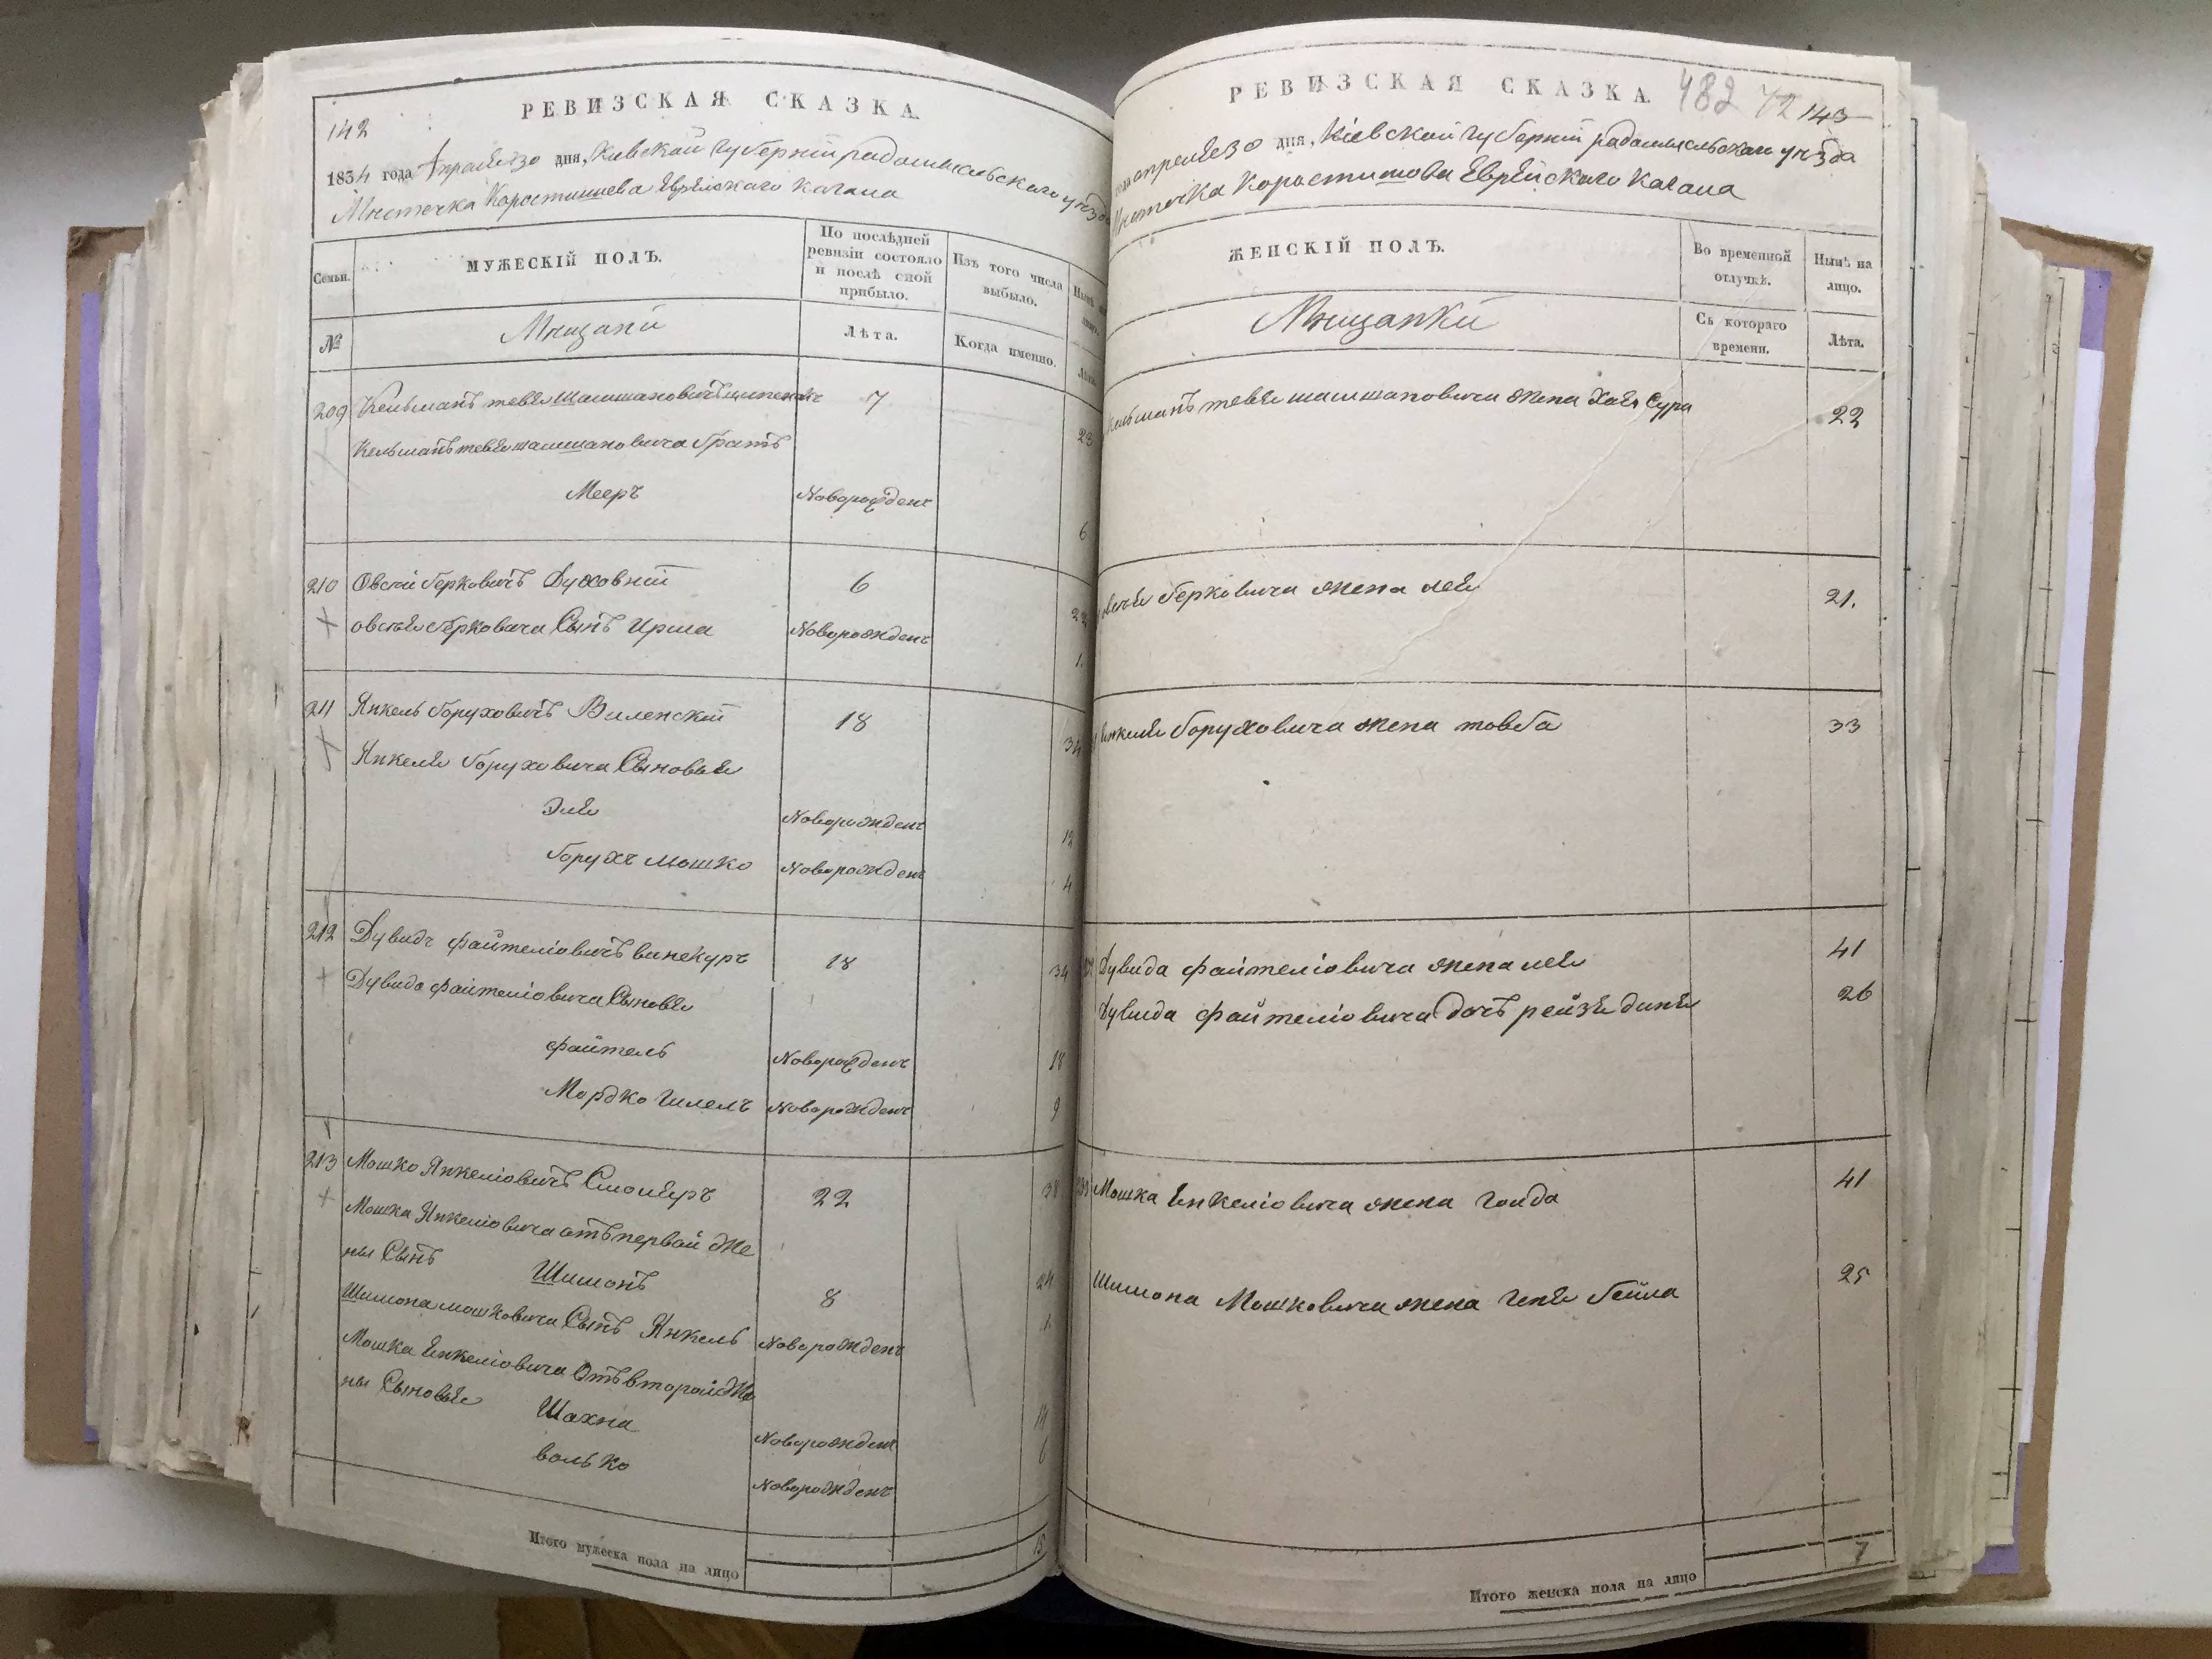 РЕВИЗСКАЯ СКАЗКА.
142
1834 года Апреля 30 дня, Киевской Губернии радомысльского уезда
Местечка Коростишева Еврейскаго Кагала
Семьи.
МУЖЕСКІЙ ПОЛЪ.
По послѣдней ревизіи состояло и послѣ оной прибыло.
Изъ того числа выбыло.
№
Мещани
Лѣта.
Когда именно.
Лѣта.
209 Кельманъ тевье Шлишановичъ 7
23
Кельманъ тевье шлишановича братъ
Мееръ Новорожденъ
6
210 Овсей берковичъ Духовній 6
22
овсея берковича Сынъ Ирша Новорожденъ
1.
211 Янкель боруховичъ Виленскій 18
34
Янкеля боруховича Сыновья
Эля Новорожденъ
12
борухъ мошко Новорожденъ
4
212 Дувидъ файтеліовичъ винокуръ 18
34
Дувида файтеліовича Сыновья
файтель Новорожденъ
18
Мордко гилелъ Новорожденъ
9
213 Мошко Янкеліовичъ Столяръ 22
38
Мошка Янкеліовича отъ первой же
ны Сынъ Шимонъ 8
24
Шимона мошковича Сынъ Янкель Новорожденъ
1.
Мошка Янкеліовича Отъ второй же
ны Сыновья Шахна Новорожденъ
14
волько Новорожденъ
6
Итого мужеска пола на лицо
15
РЕВИЗСКАЯ СКАЗКА.
482 72 143
апреля 30 дня, Кіевской губерніи радомысльскаго уезда
Местечка Коростишова Еврейскаго Кагала
ЖЕНСКІЙ ПОЛЪ.
Во временной отлучкѣ.
Нынѣ на лицо.
Мещанки
Съ котораго времени.
Лѣта.
Кельманъ тевье шлишановича жена Хая Сура 22
овсея берковича жена лея 21.
янкеля боруховича жена товба 33
Дувида файтеліовича жена лея 41
Дувида файтеліовича дочъ рейзя диня 26
Мошка Янкеліовича жена голда 41
Шимона Мошковича жена геня бейла 25
Итого женска пола на лицо
7